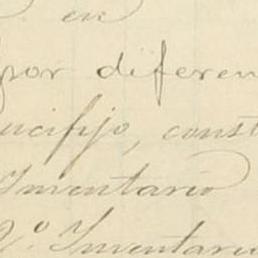 en
por diferen
ucifijo, const
Inventario
2º. Inventario